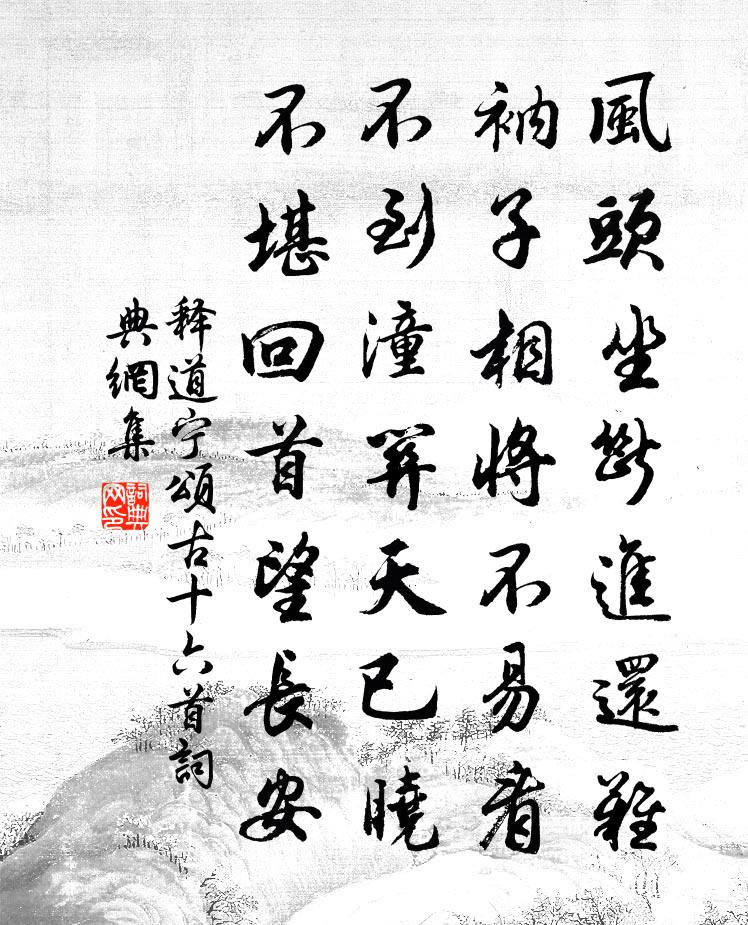 風頭坐斷進還難
衲子相將不易看
不到潼關天已曉
不堪回首望長安
释道宁頌古十六首詞
典網集
詞典
网印